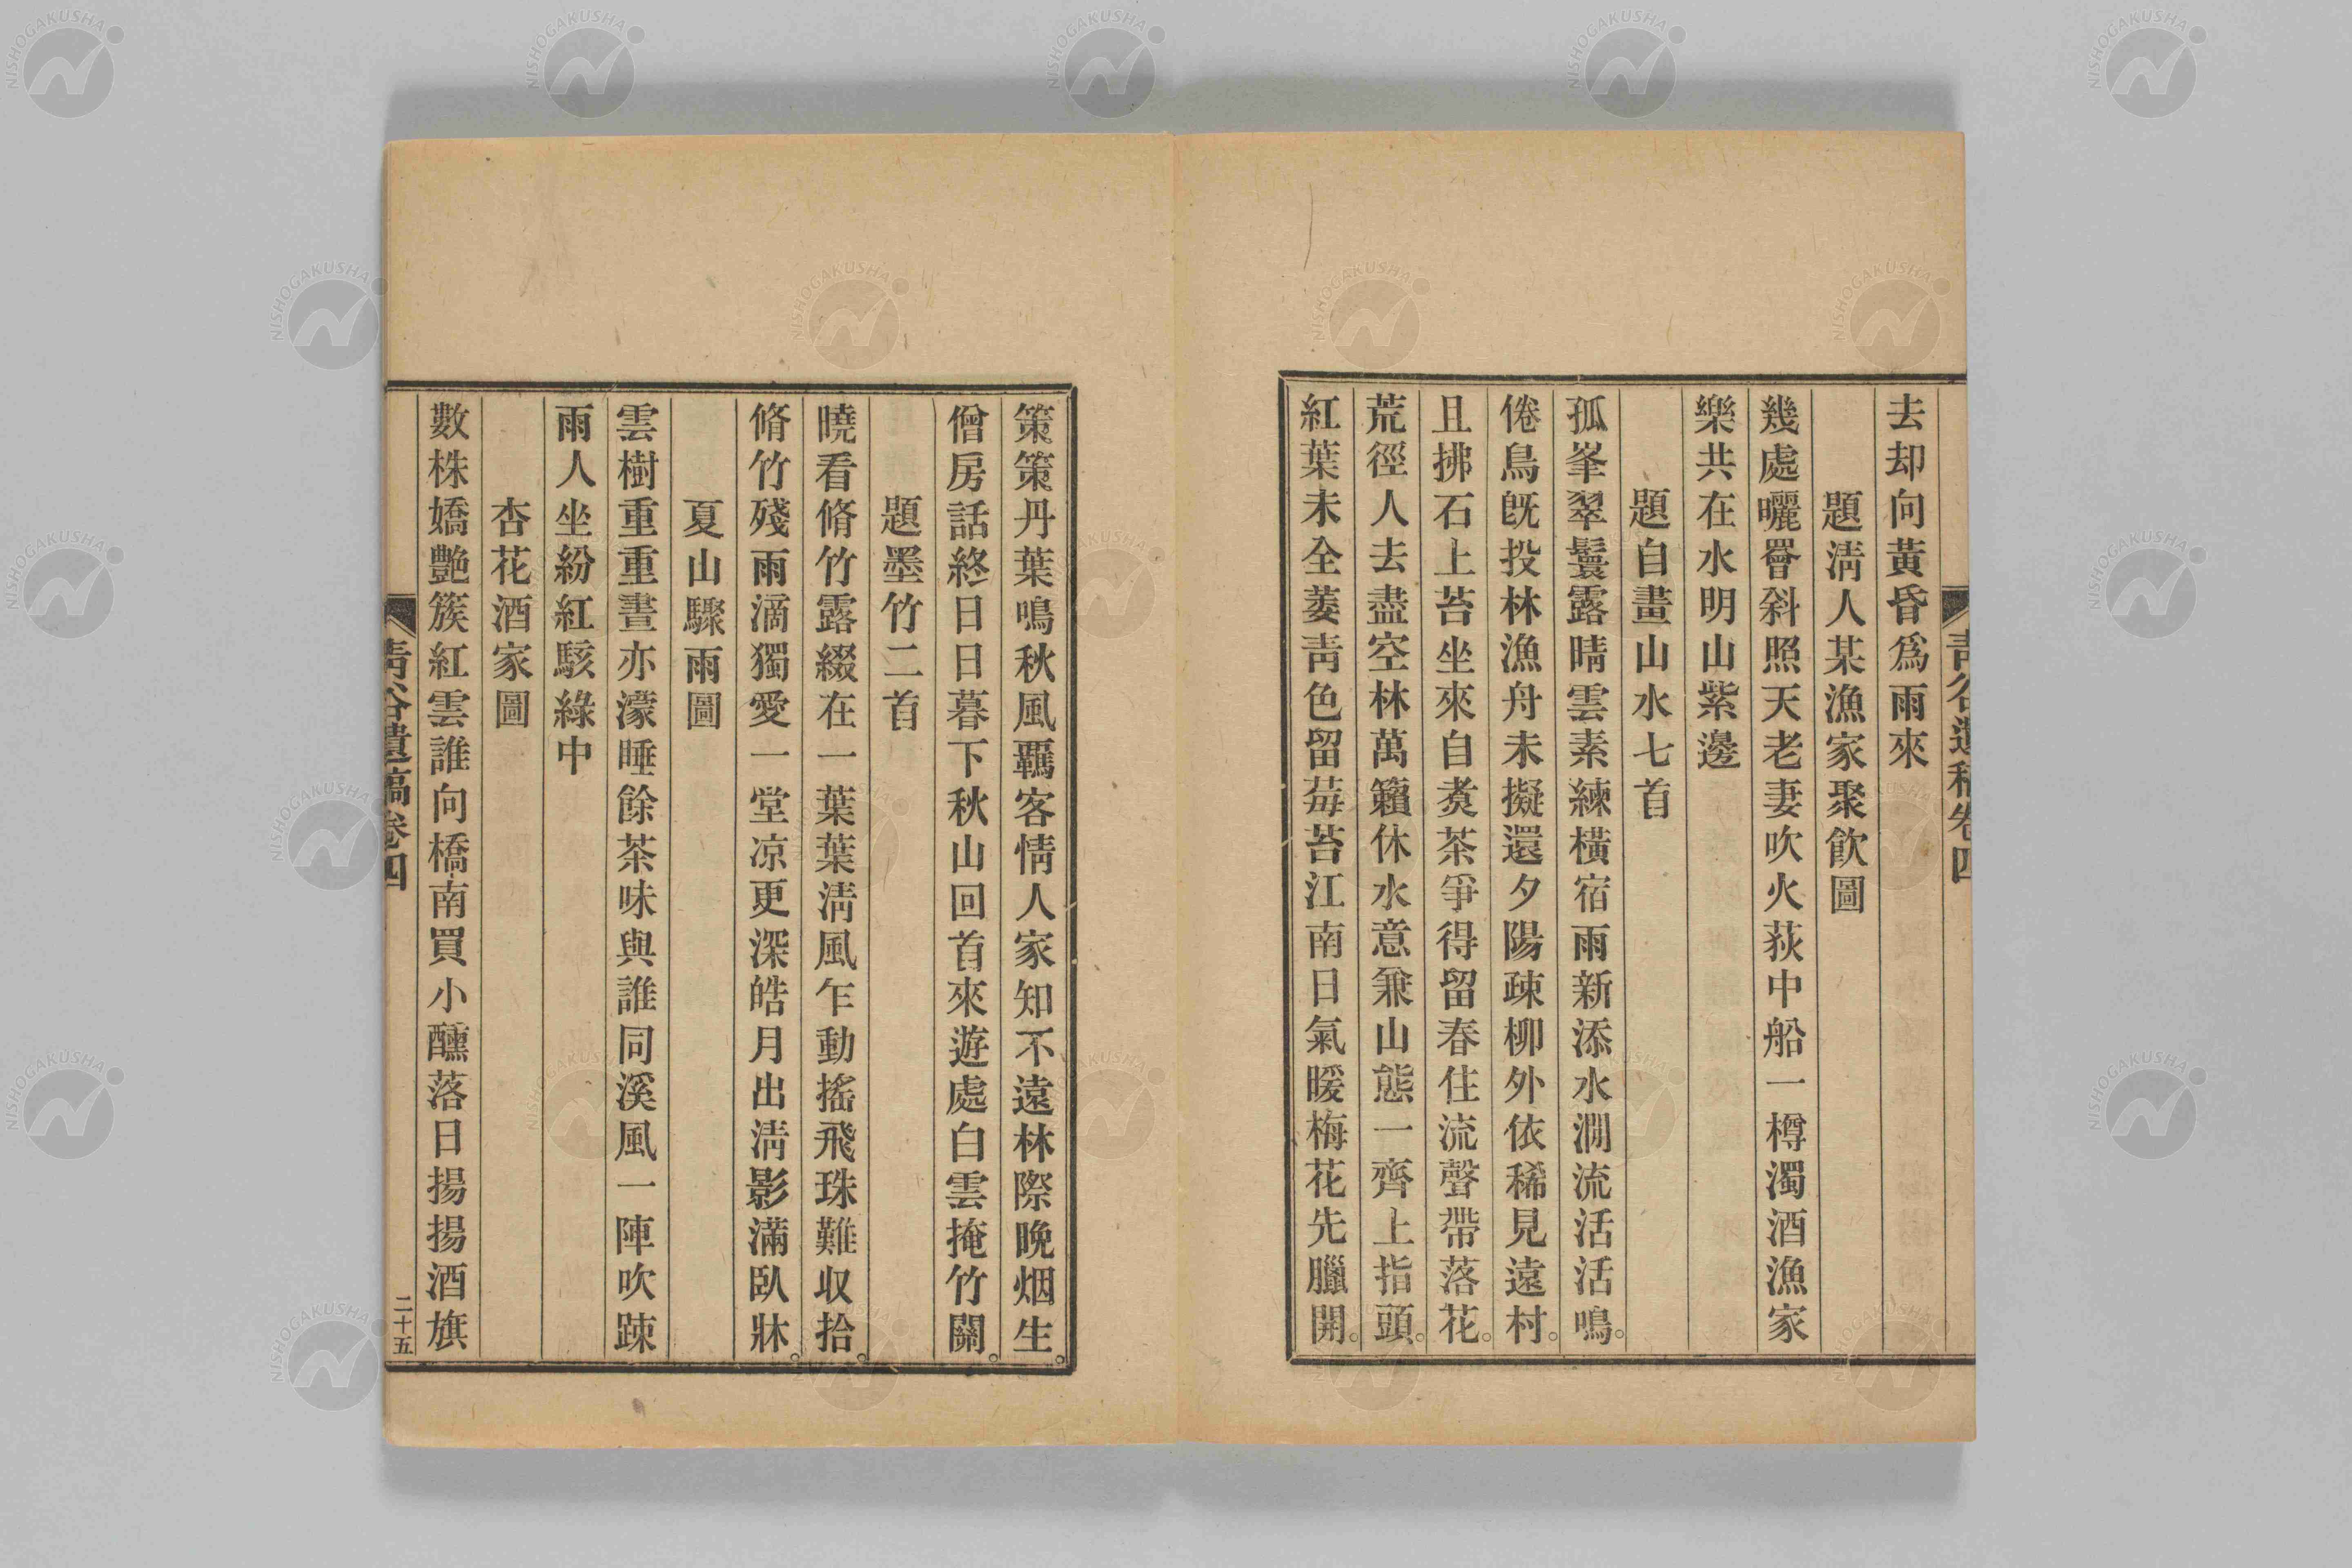 青谷遺稿卷四
去却向黃昏爲雨來
題淸人某漁家聚飮圖
幾處曬罾斜照天老妻吹火荻中船一樽濁酒漁家
樂共在水明山紫邊
題自畫山水七首
孤峯翠鬟露晴雲素練橫宿雨新添水澗流活活鳴。
倦鳥既投林漁舟未擬還夕陽疎柳外依稀見遠村。
且拂石上苔坐來自煑茶爭得留春住流聲帶落花。
荒徑人去盡空林萬籟休水意兼山態一齊上指頭。
紅葉未全萎靑色留莓苔江南日氣暖梅花先臘開。
策策丹葉鳴秋風羈客情人家知不遠林際晚烟生。
僧房話終日日暮下秋山回首來遊處白雲掩竹關。
題墨竹二首
曉看脩竹露綴在一葉葉淸風乍動搖飛珠難収拾。
脩竹殘雨滴獨愛一堂凉更深皓月出淸影滿臥牀。
夏山驟雨圖
雲樹重重晝亦濛睡餘茶味與誰同溪風一陣吹疎
雨人坐紛紅駭綠中
杏花酒家圖
數株嬌艷簇紅雲誰向橋南買小醺落日揚揚酒旗
靑谷遺稿卷四
二十五
NISHOGAKUSHA